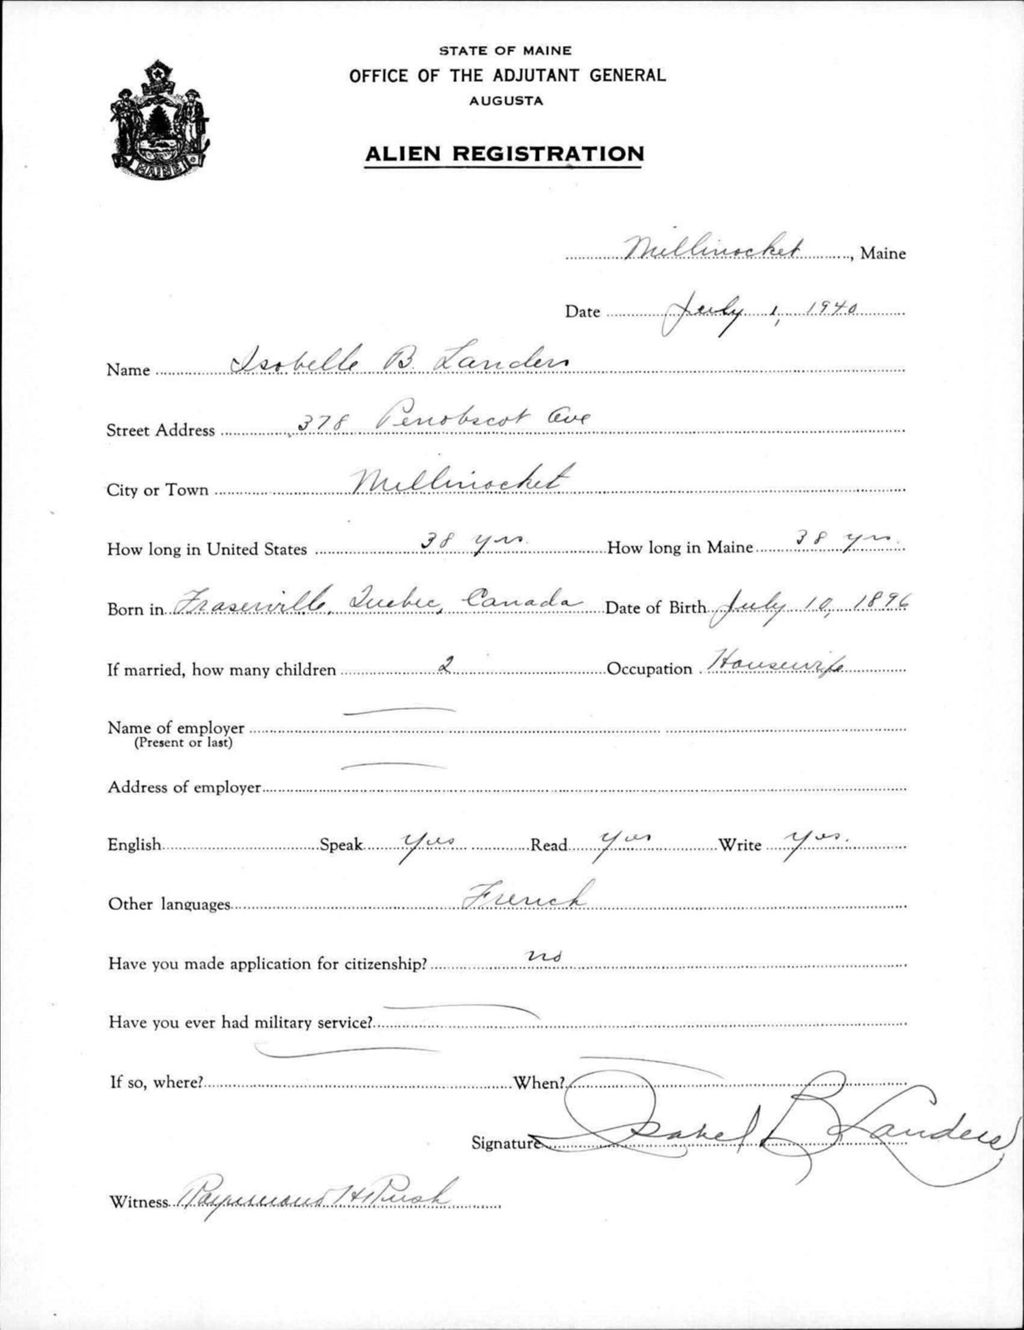 STATE OF MAINE
OFFICE OF THE ADJUTANT GENERAL
AUGUSTA
ALIEN REGISTRATION
MAINE
Millinocket, Maine
Date July 1, 1940
Name Isobelle B. Landers
Street Address 378 Penobscot Ave
City or Town Millinocket
How long in United States 38 yrs How long in Maine 38 yrs
Born in Fraserville, Quebec, Canada Date of Birth July 10, 1896
If married, how many children 2 Occupation Housewife
Name of employer
(Present or last)
Address of employer
English Speak Yes Read Yes Write Yes.
Other languages French
Have you made application for citizenship? no
Have you ever had military service?
If so, where? When?
Signature Isabel B Landers
Witness Raymond H Rush